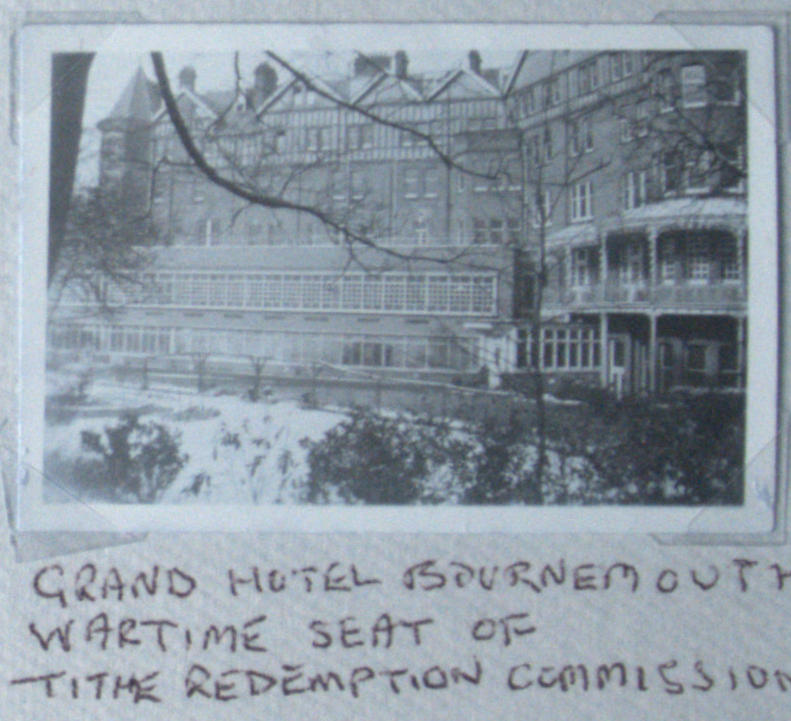 GRAND HOTEL BOURNEMOUTH
WARTIME SEAT OF
TITHE REDEMPTION COMMISSION